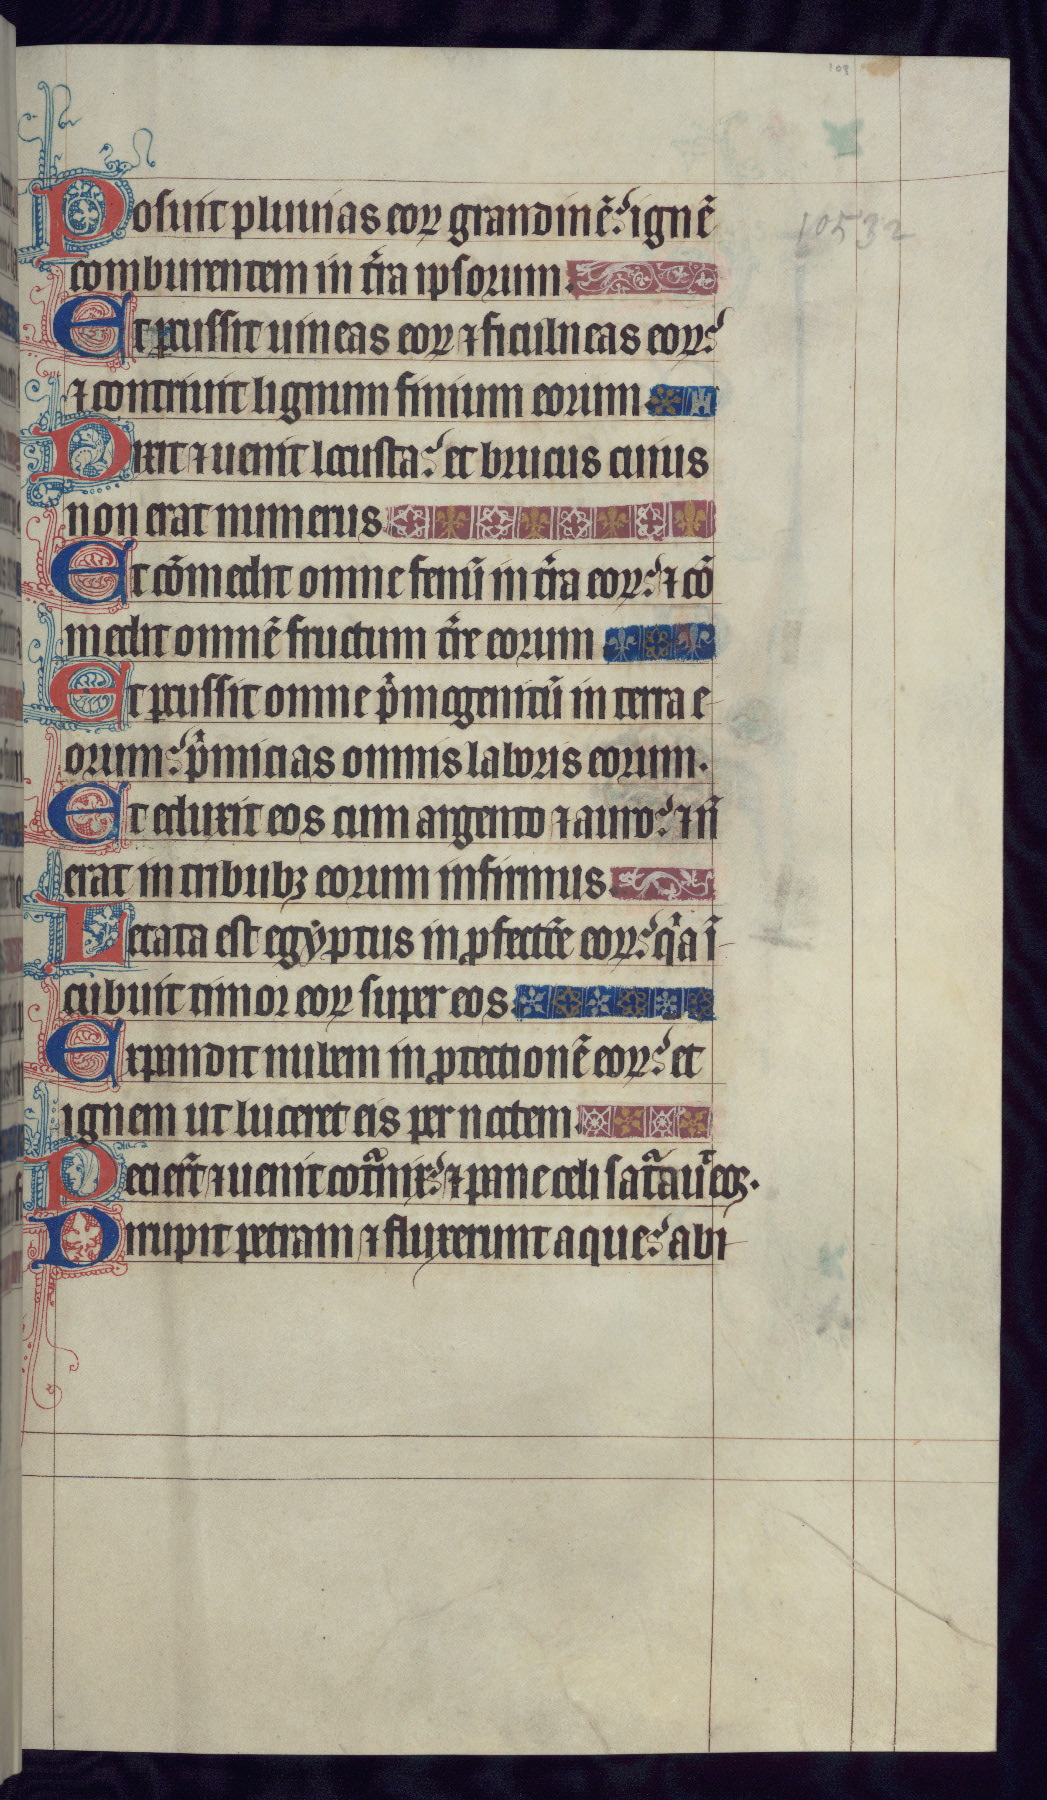 103
10532
Posuit pluuias eoꝝ grandinē: ignē
comburentem in t̄ra ipsorum.
Et ꝑcussit uineas eoꝝ ⁊ ficulneas eoꝝ:
⁊ contriuit lignum finium eorum
Dixit ⁊ uenit locusta: et brucus cuius
non erat numerus
Et cōmedit omne fenū in t̄ra eoꝝ: ⁊ cō
medit omnē fructum t̄re eorum
Et ꝑcussit omne p̄mogenitū in terra e-
orum: p̄micias omnis laboris eorum.
Et eduxit eos cum argento ⁊ auro: ⁊ nō
erat in tribubꝫ eorum infirmus.
Letata est egyptus in ꝓfectōe eoꝝ: qͣa ī-
cubuit timor eoꝝ super eos
Expandit nubem in ꝓtectionē eoꝝ: et
ignem ut luceret eis per noctem.
Pecier̄t ⁊ uenit cotͣnix: ⁊ pane celi satͣauͥ eos.
Dirupit petram ⁊ fluxerunt aque: abi-